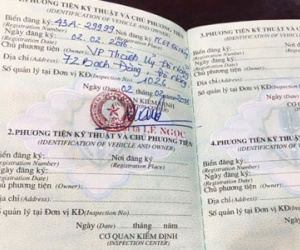 PHƯƠNG TIỆN KỸ THUẬT VÀ CHỦ PHƯƠNG TIỆN
(IDENTIFICATION OF VEHICLE AND OWNER)
Biển đăng ký: 43A-29999 Nơi đăng ký
(Registration Number) (Registration Place)
Ngày đăng ký 02.02.2016
(Registration Date)
Chủ phương tiện (Owner): VP Thành Ủy Đà Nẵng
Địa chỉ (Address): 72 Bạch Đằng
Số quản lý tại Đơn vị KĐ (Inspection No)
Ngày (Date) 02 tháng 02 năm
CƠ QUAN KIỂM ĐỊNH
LÊ NGỌC
2.PHƯƠNG TIỆN KỸ THUẬT VÀ CHỦ PHƯƠNG TIỆN
(IDENTIFICATION OF VEHICLE AND OWNER)
Biển đăng ký: Nơi đăng ký:
(Registration Number) (Registration Place)
Ngày đăng ký
(Registration Date)
Chủ phương tiện (Owner):
Địa chỉ (Address):
Số quản lý tại Đơn vị KĐ (Inspection No)
Ngày (Date) tháng năm
CƠ QUAN KIỂM ĐỊNH
(INSPECTION CENTER)
(Registration Place)
Ngày đăng ký
(Registration Date)
Chủ phương tiện (Owner):
Địa chỉ (Address):
Số quản lý tại Đơn vị KĐ
Ngày (Date)
4.PHƯƠNG TIỆN KỸ THUẬT
(IDENTIFICATION
Biển đăng ký:
(Registration Number)
Ngày đăng ký
(Registration Date)
Chủ phương tiện (Owner):
Địa chỉ (Address):
Số quản lý tại Đơn vị KĐ
Ngày